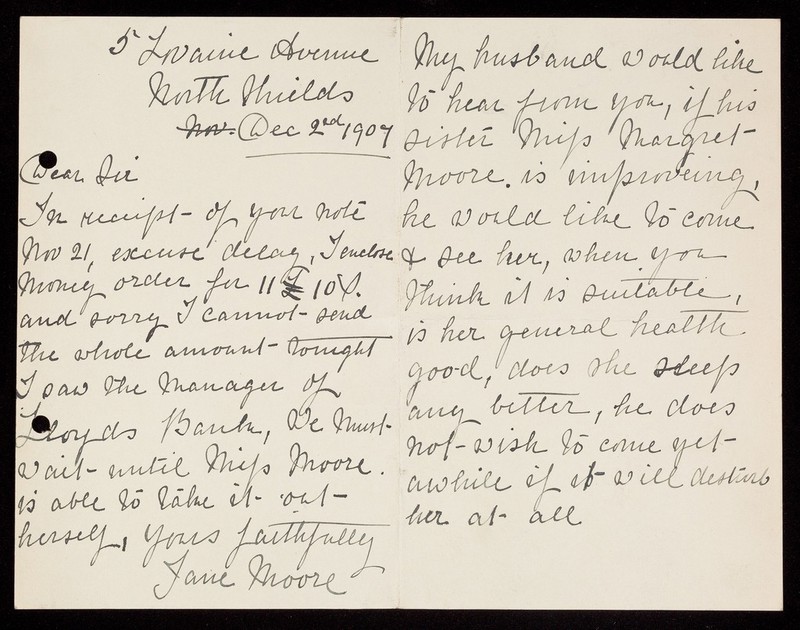 5 Lovaine Avenue
North Shields
Nov. Dec 2nd 1907
Dear Sir
In receipt of your note
Nov 21, excuse delay, I enclose
Money order for 11 £ 10 S.
and sorry I cannot send
the whole amount tonight
I saw the Manager of
Lloyds Bank, We Must
wait until Miss Moore.
is able to take it out
herself, Yours faithfully
Jane Moore
My husband would like
to hear from you, if his
sister Miss Margret
Moore. is improveing,
he would like to come
& see her, when you
think it is suitable,
is her general health
good, does she sleep
any better, he does
not wish to come yet
awhile if it will desturb
her at all